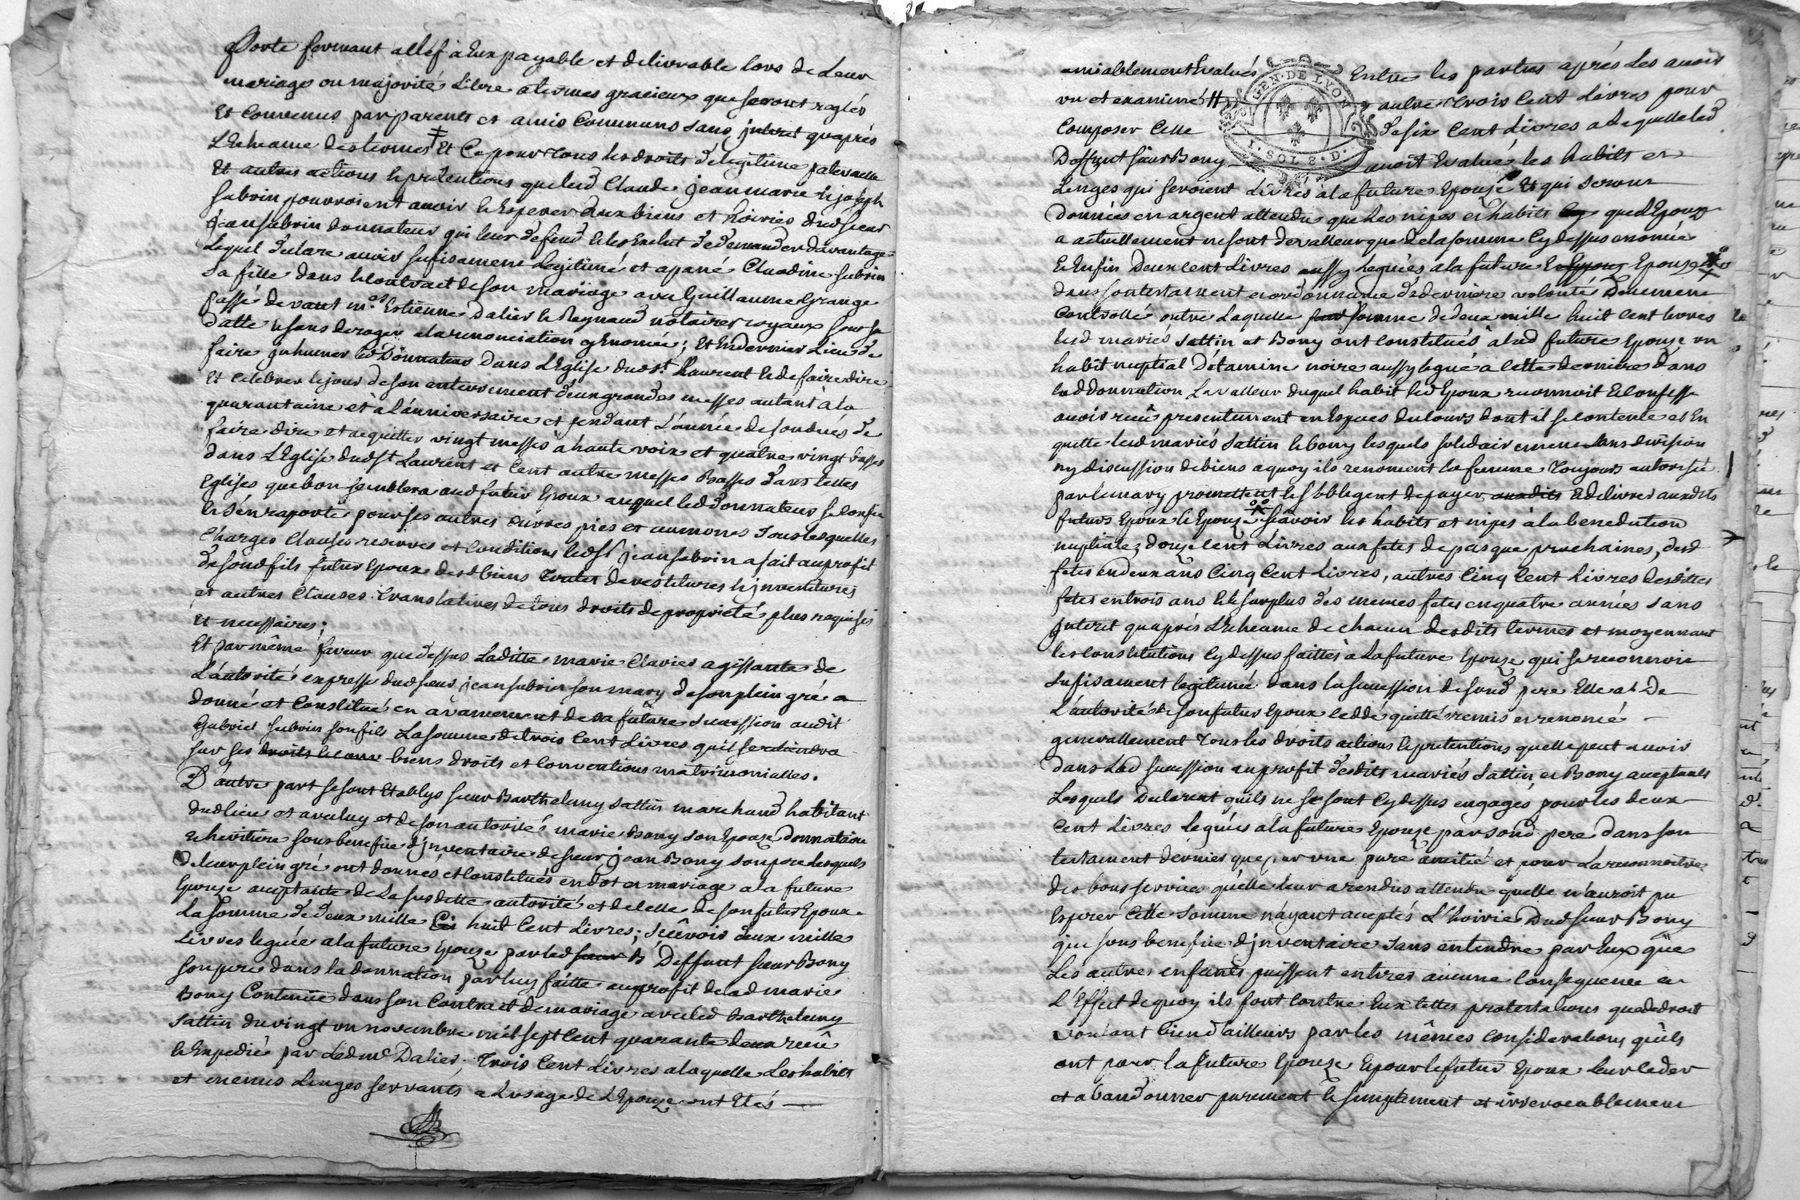 Porte fermant a clef à Eux payable et delivrable lors de Leur
mariage ou majorité Libre a termes gracieux que seront reglés
Et Convenus par parents et amis Communs sans jnteret qu'après
L'Echeance des termes Et Ce pour tous les droits de legitime paternelle
Et autres actions & pretentions que led Claude, jean marie & joseph
subrin pourroient avoir & Esperer aux biens et hoiries dud sieur
jean subrin donnateur qui leur defend & les Exclut de demander davantage
Lequel declare avoir sufisament legitimé et apané Claudine subrin
sa fille dans le contract de son mariage avec Guillaume Grange
passé devant me Estienne Dalier & Reynaud notaires royaux sous sa
datte & sans deroger a la renonciation y enoncée; Et En dernier Lieu de
faire jnhumer led Donnateur dans L'Eglise dud st Laurent & de faire dire
Et celebrer le jour de son enterrement deux grandes messes autant à la
quarantaine et à l'anniversaire et pendant L'année de son deces de
faire dire et acquitter vingt messes à haute voix et quatre vingt basses
dans L'Eglise dud st Laurent et Cent autre messes Basses dans telles
Eglises que bon semblera aud futur Epoux auquel led Donnateur se confie
& s'en raporte pour ses autres oeuvres pies et aumones sous lesquelles
Charges Clauses reserves et Conditions led sr jean subrin a fait au profit
de sond fils futur Epoux desd biens toutes devestitures & jnvestitures
et autres Clauses translatives de tous droits de proprieté plus requises
et necessaires;
Et par même faveur que dessus Laditte marie Clavier agissante de
L'autorité expresse dud sieur jean subrin son mary de son plein gré a
donné et Constitué en avancement de sa future succession audit
Gabriel subrin son fils La somme de trois Cent Livres qu'il
sur ses biens droits et Conventions matrimonialles.
D'autre part se sont Etablys sieur Barthelemy Sattin marchand habitant
dud lieu et avec luy et de son autorité marie Bony son Epouze donnataire
& heritiere sous benefice d'jnventaire de sieur jean Bony son pere lesquels
de leur plein gré ont donnés et Constitués en dot et mariage a la future
Epouse aceptante de la susdette autorité et de celle de son futur Epoux
La somme de deux mille huit Cent Livres; sçavoir deux mille
Livres leguée a la future Epouze par led Deffunt sieur Bony
son pere dans la donnation par luy faitte au profit de lad marie
Bony Contenüe dans son Contract de mariage avec led Barthelemy
Sattin du vingt un novembre mil sept Cent quarante deux reçû
& Expedié par Led me Dalier; Trois Cent Livres a laquelle Les habits
et menus Linges servants a L'usage de L'Epouze ont Etés
amiablement Evalués Entre les parties après Les avoir
vu et examinés autre trois Cent Livres pour
Composer Celle de six Cent Livres a laquelle led
Deffunt sieur Bony avoit Evalué les habits et
Linges qui seroient Livrés a la future Epouze Et qui seront
données en argent attendu que les nipes et habits que l'Epouze
a actuellement ne sont de valleur que de la somme Cy dessus enoncée
Et Enfin Deux cent Livres aussy leguées a la future Epouze
dans son testament et ordonnance de derniere volonté Duement
Controllé outre Laquelle somme de deux mille huit Cent Livres
lesd mariés Sattin et Bony ont Constitués à lad future Epouze un
habit nuptial D'étamine noire aussy legué a Cette derniere dans
lad Donnation La valleur duquel habit led Epoux reconnoit & confesse
avoir reçû presentement en Especes du Cours dont il se contente et En
quitte lesd mariés Sattin & bony lesquels solidairement sans division
ny discussion de biens a quoy ils renoncent la femme toujours autorisée
par le mary promettent & s'obbligent de payer & delivrer auxdits
futurs Epoux & Epouze sçavoir les habits et nipes à la benediction
nuptiale; douze Cent Livres aux fetes de pasque prochaines, desd
fetes en deux ans Cinq Cent Livres, autres Cinq Cent Livres desdittes
fetes en trois ans & le surplus des memes fetes en quatre années sans
jnteret qu'après L'Echeance de chacun desdits termes et moyennant
les Constitutions Cy dessus faittes à La future Epouze qui se reconnoit
sufisament legitimée dans la succession de sond pere Elle a de
L'autorité de son futur Epoux cedé quitté remis et renoncé
generallement Tous les droits actions & pretentions quelle peut avoir
dans Lad succession au profit desdits mariés Sattin et Bony aceptants
Lesquels Declarent qu'ils ne se sont Cy dessus engagés pour les deux
Cent Livres leguées a la future Epouze par sond pere dans son
testament dernier que par une pure amitié et pour La reconnoitre
des bons services qu'elle leur a rendus attendu qu'elle n'auroit pu
Esperer Cette somme n'ayant aceptés L'hoirie Dud sieur Bony
que sous benefice d'jnventaire sans entendre par Eux que
Les autres enfants puissent en tirer aucune Consequence en
L'Effect de quoy ils font contre Eux telles protestations que de droit
voulant bien d'ailleurs par les mêmes Considerations qu'ils
ont pour la future Epouze & pour le futur Epoux leur ceder
et abandonner purement & simplement et irrevocablement
GEN · DE LYON
I · SOL 8 · D ·